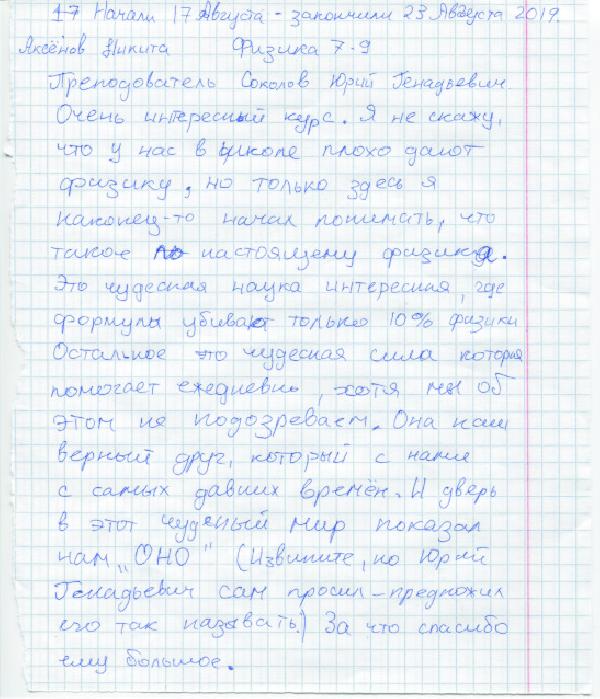 17 Начали 17 Августа - закончили 23 Августа 2019.
Аксёнов Никита Физика 7-9
Преподователь Соколов Юрий Генадьевич.
Очень интересный курс. Я не скажу,
что у нас в школе плохо дают
физику, но только здесь я
наконец-то начал понимать, что
такое по настоящему физика.
Это чудесная наука интересная, где
формулы убивают только 10% физики
Остальное это чудесная сила которая
помогает ежедневно, хотя мы об
этом не подозреваем. Она наш
верный друг, который с нами
с самых давних времён. И дверь
в этот чудный мир показал
нам „ОНО" (Извините, но Юрий
Генадьевич сам просил-предложил
его так называть.) За что спасибо
ему большое.